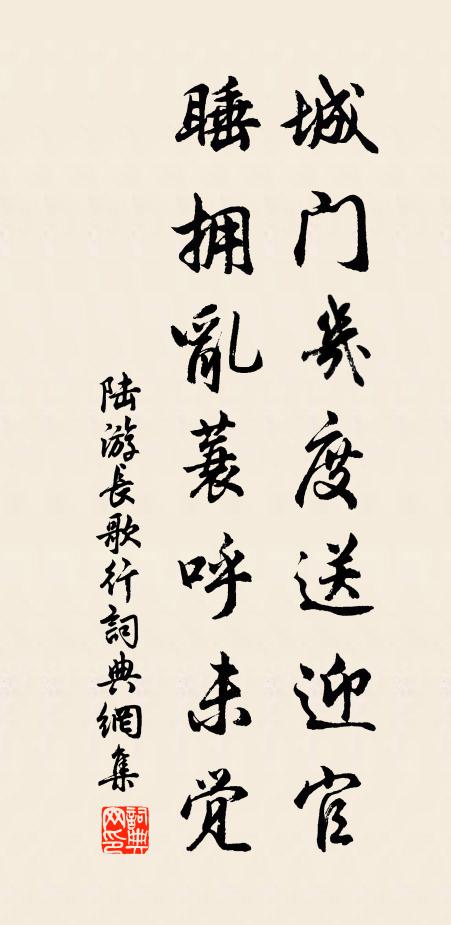 城门幾度送迎官
睡拥亂蓑呼未觉
陆游长歌行詞典網集
詞典網印